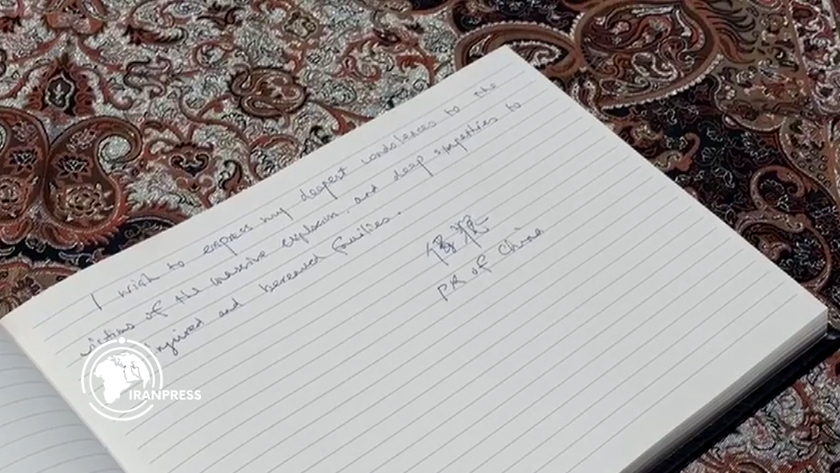 I wish to express my deepest condolences to the
victims of the massive explosion, and deep sympathies to
injured and bereaved families.
PR of China
IRANPRESS